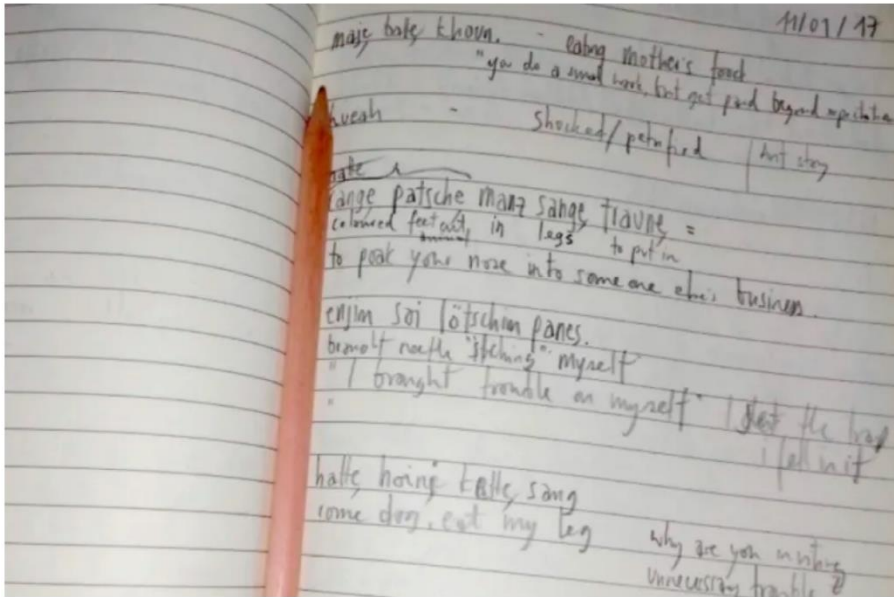 11/01/17
maje bate khoun. - eating mother's food
"you do a small work, but get paid beyond expectation
hueah - shocked/petrified
range patsche manz sange traune =
coloured feet in legs to put in
to peak your nose into someone else's business.
enjim soi lötschim panes.
needle "stiching" myself
"I brought trouble on myself" I set the trap
"
I fell in it
hatte hoine tsatte sang
come dog, eat my leg
why are you inviting
unnecessary trouble?